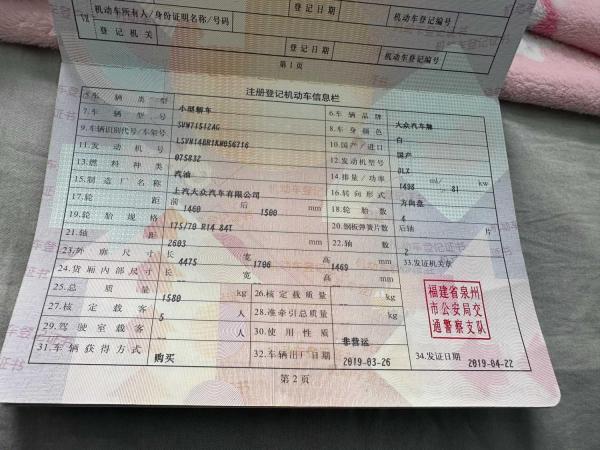 机动车所有人/身份证明名称/号码
登记机关 登记日期 机动车登记编号
登记日期 机动车登记编号
第1页
注册登记机动车信息栏
5.车辆类型 小型轿车 6.车辆品牌 大众汽车牌
7.车辆型号 SVW71512AG 8.车身颜色 白
9.车辆识别代号/车架号 LSVN14BR1KN056716 10.国产/进口 国产
11.发动机号 075832 12.发动机型号 DLX
13.燃料种类 汽油 14.排量/功率 1498 ml/ 81 kw
15.制造厂名称 上汽大众汽车有限公司 16.转向形式 方向盘
17.轮距 前 1460 后 1500 mm 18.轮胎数 4
19.轮胎规格 175/70 R14 84T 20.钢板弹簧片数 后轴 片
21.轴距 2603 mm 22.轴数 2
23.外廓尺寸 长 4475 宽 1706 高 1469 mm 33.发证机关章
24.货厢内部尺寸 长 宽 高 mm
25.总质量 1580 kg 26.核定载质量 -- kg
27.核定载客 5 人 28.准牵引总质量 -- kg
29.驾驶室载客 -- 人 30.使用性质 非营运
31.车辆获得方式 购买 32.车辆出厂日期 2019-03-26 34.发证日期 2019-04-22
福建省泉州
市公安局交
通警察支队
第2页